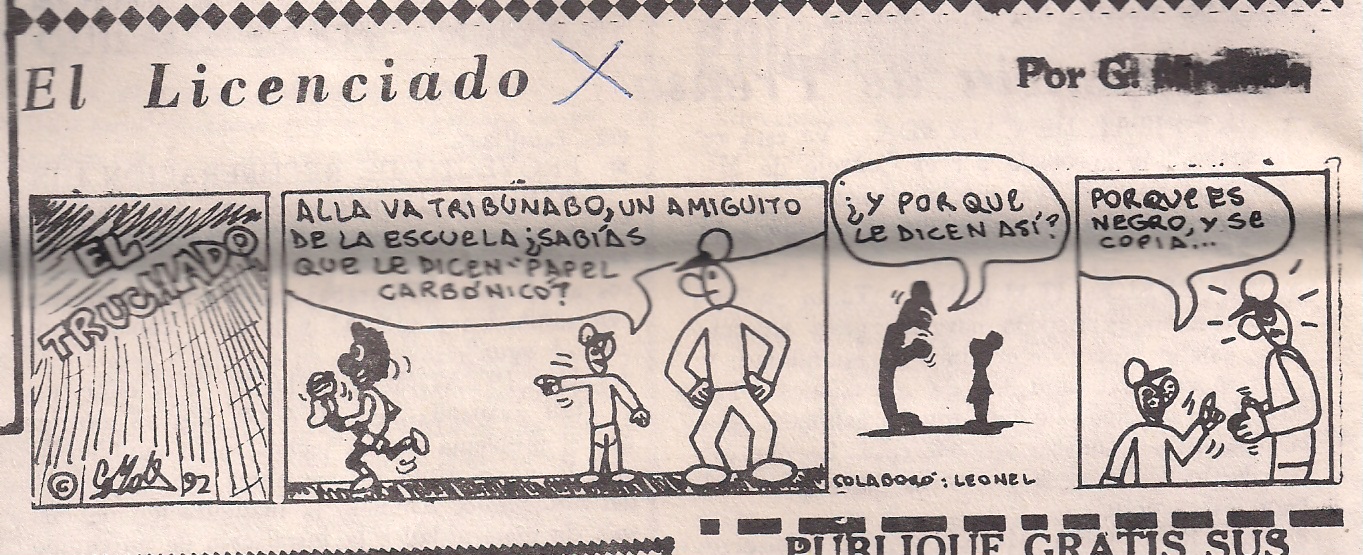 El Licenciado X
Por G.
EL
TRUCHADO
© 92
ALLA VA TRIBUNABO, UN AMIGUITO
DE LA ESCUELA ¿SABÍAS
QUE LE DICEN "PAPEL
CARBÓNICO"?
¿Y POR QUE
LE DICEN ASÍ?
COLABORÓ: LEONEL
PORQUE ES
NEGRO, Y SE
COPIA...
PUBLIQUE GRATIS SUS